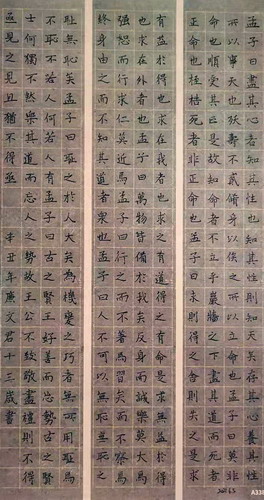 孟子曰盡其心者知其性也知其性則知天矣存其心養其性
所以事天也殀壽不貳脩身以俟之所以立命也孟子曰莫非
命也順受其正是故知命者不立乎巖牆之下盡其道而死者
正命也桎梏死者非正命也孟子曰求則得之舍則失之是求
有益於得也求在我者也求之有道得之有命是求無益於得
也求在外者也孟子曰萬物皆備於我矣反身而誠樂莫大焉
強恕而行求仁莫近焉孟子曰行之而不著焉習矣而不察焉
終身由之而不知其道者衆也孟子曰人不可以無恥無恥之
恥無恥矣孟子曰恥之於人大矣為機變之巧者無所用恥焉
不恥不若人何若人有孟子曰古之賢王好善而忘勢古之賢
士何獨不然樂其道而忘人之勢故王公不致敬盡禮則不得
亟見之見且猶不得亟 辛丑年唐文君十三歲書
A338